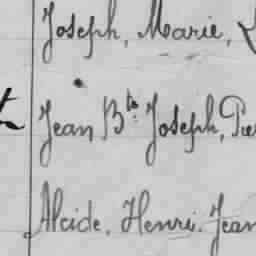 Joseph, Marie,
Jean Bte Joseph, Pie
Alcide, Henri, Jean